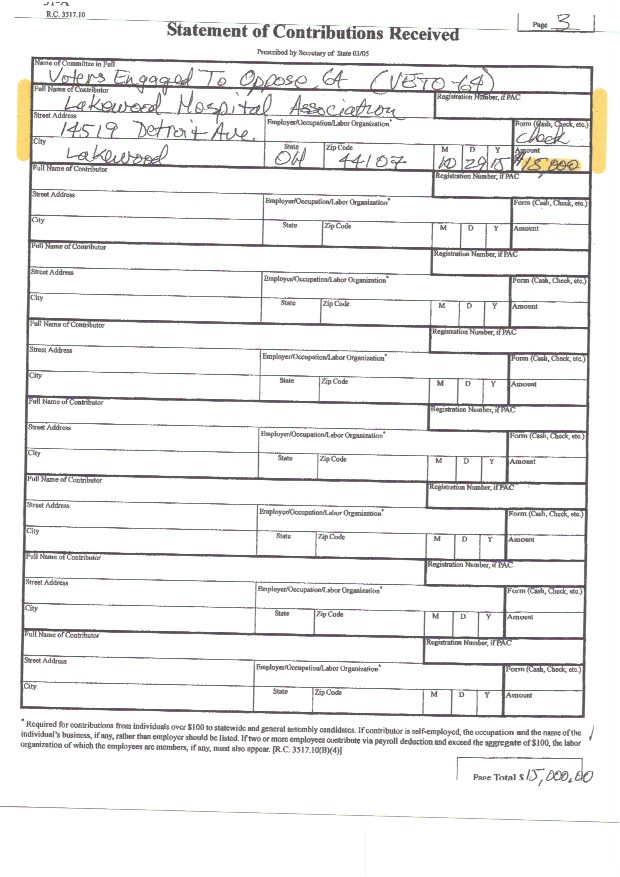 R.C. 3517.10
Page 3
Statement of Contributions Received
Prescribed by Secretary of State 03/05
Name of Committee in Full
Voters Engaged To Oppose 64 (VETO-64)
Full Name of Contributor
Registration Number, if PAC
Lakewood Hospital Association
Street Address
Employer/Occupation/Labor Organization*
Form (Cash, Check, etc.)
14519 Detroit Ave.
Check
City State Zip Code M D Y Amount
Lakewood OH 44107 10 29 15 $15,000
Full Name of Contributor
Registration Number, if PAC
Street Address
Employer/Occupation/Labor Organization*
Form (Cash, Check, etc.)
City State Zip Code M D Y Amount
Full Name of Contributor
Registration Number, if PAC
Street Address
Employer/Occupation/Labor Organization*
Form (Cash, Check, etc.)
City State Zip Code M D Y Amount
Full Name of Contributor
Registration Number, if PAC
Street Address
Employer/Occupation/Labor Organization*
Form (Cash, Check, etc.)
City State Zip Code M D Y Amount
Full Name of Contributor
Registration Number, if PAC
Street Address
Employer/Occupation/Labor Organization*
Form (Cash, Check, etc.)
City State Zip Code M D Y Amount
Full Name of Contributor
Registration Number, if PAC
Street Address
Employer/Occupation/Labor Organization*
Form (Cash, Check, etc.)
City State Zip Code M D Y Amount
Full Name of Contributor
Registration Number, if PAC
Street Address
Employer/Occupation/Labor Organization*
Form (Cash, Check, etc.)
City State Zip Code M D Y Amount
Full Name of Contributor
Registration Number, if PAC
Street Address
Employer/Occupation/Labor Organization*
Form (Cash, Check, etc.)
City State Zip Code M D Y Amount
* Required for contributions from individuals over $100 to statewide and general assembly candidates. If contributor is self-employed, the occupation and the name of the
individual's business, if any, rather than employer should be listed. If two or more employees contribute via payroll deduction and exceed the aggregate of $100, the labor
organization of which the employees are members, if any, must also appear. [R.C. 3517.10(B)(4)]
Page Total $15,000.00